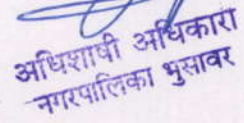 अधिशाषी अधिकारी
नगरपालिका भुसावर